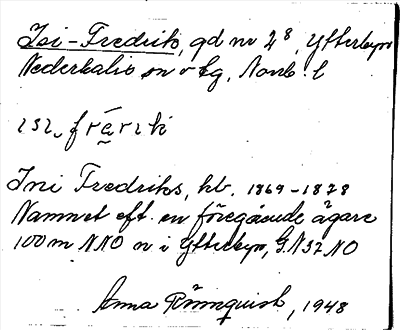 Isi-Fredriks, gd nr 2⁸, Ytterbyn
Nederkalix sn o kg, Norrb. l
Jni Fredriks, hb. 1869-1878
Namnet eft. en föregående ägare
100 m NNO n i Ytterbyn, G.N32NO
Anna Rönnquist, 1948